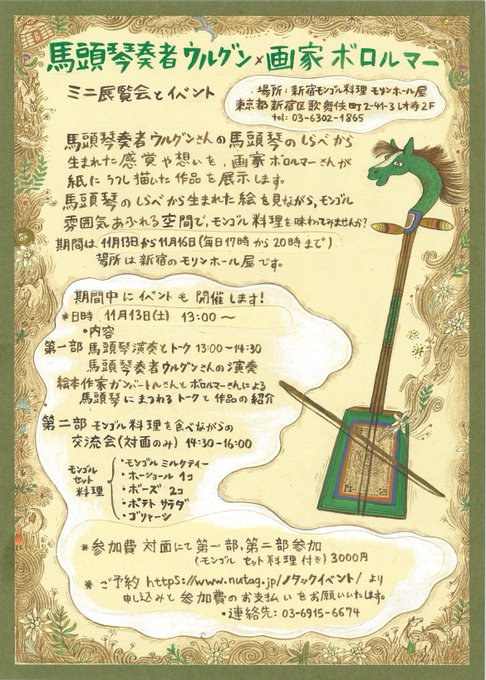 馬頭琴奏者ウルグン×画家ボロルマー
ミニ展覧会とイベント
場所:新宿モンゴル料理 モリンホール屋
東京都新宿区歌舞伎町2-41-3 レオ寿2F
tel: 03-6302-1865
馬頭琴奏者ウルグンさんの馬頭琴のしらべから
生まれた感覚や想いを、画家ボロルマーさんが
紙にうつし描いた作品を展示します。
馬頭琴のしらべから生まれた絵を見ながら、モンゴル
雰囲気あふれる空間で、モンゴル料理を味わってみませんか?
期間は11月13日から11月16日(毎日17時から20時まで)
場所は新宿のモリンホール屋です。
期間中にイベントも開催します!
*日時 11月13日(土) 13:00〜
・内容
第一部 馬頭琴演奏とトーク 13:00〜14:30
馬頭琴奏者ウルグンさんの演奏
絵本作家ガンバートルさんとボロルマーさんによる
馬頭琴にまつわるトークと作品の紹介
第二部 モンゴル料理を食べながらの
交流会(対面のみ) 14:30-16:00
モンゴル
セット
料理
・モンゴルミルクティー
・ホーショール 1コ
・ボーズ 2コ
・ポテトサラダ
・ゴリヤーシ
*参加費 対面にて第一部,第二部参加
(モンゴルセット料理付き) 3000円
*ご予約 https://www.nutag.jp/ノタックイベント/ より
申し込みと参加費のお支払いをお願いいたします。
・連絡先: 03-6915-6674